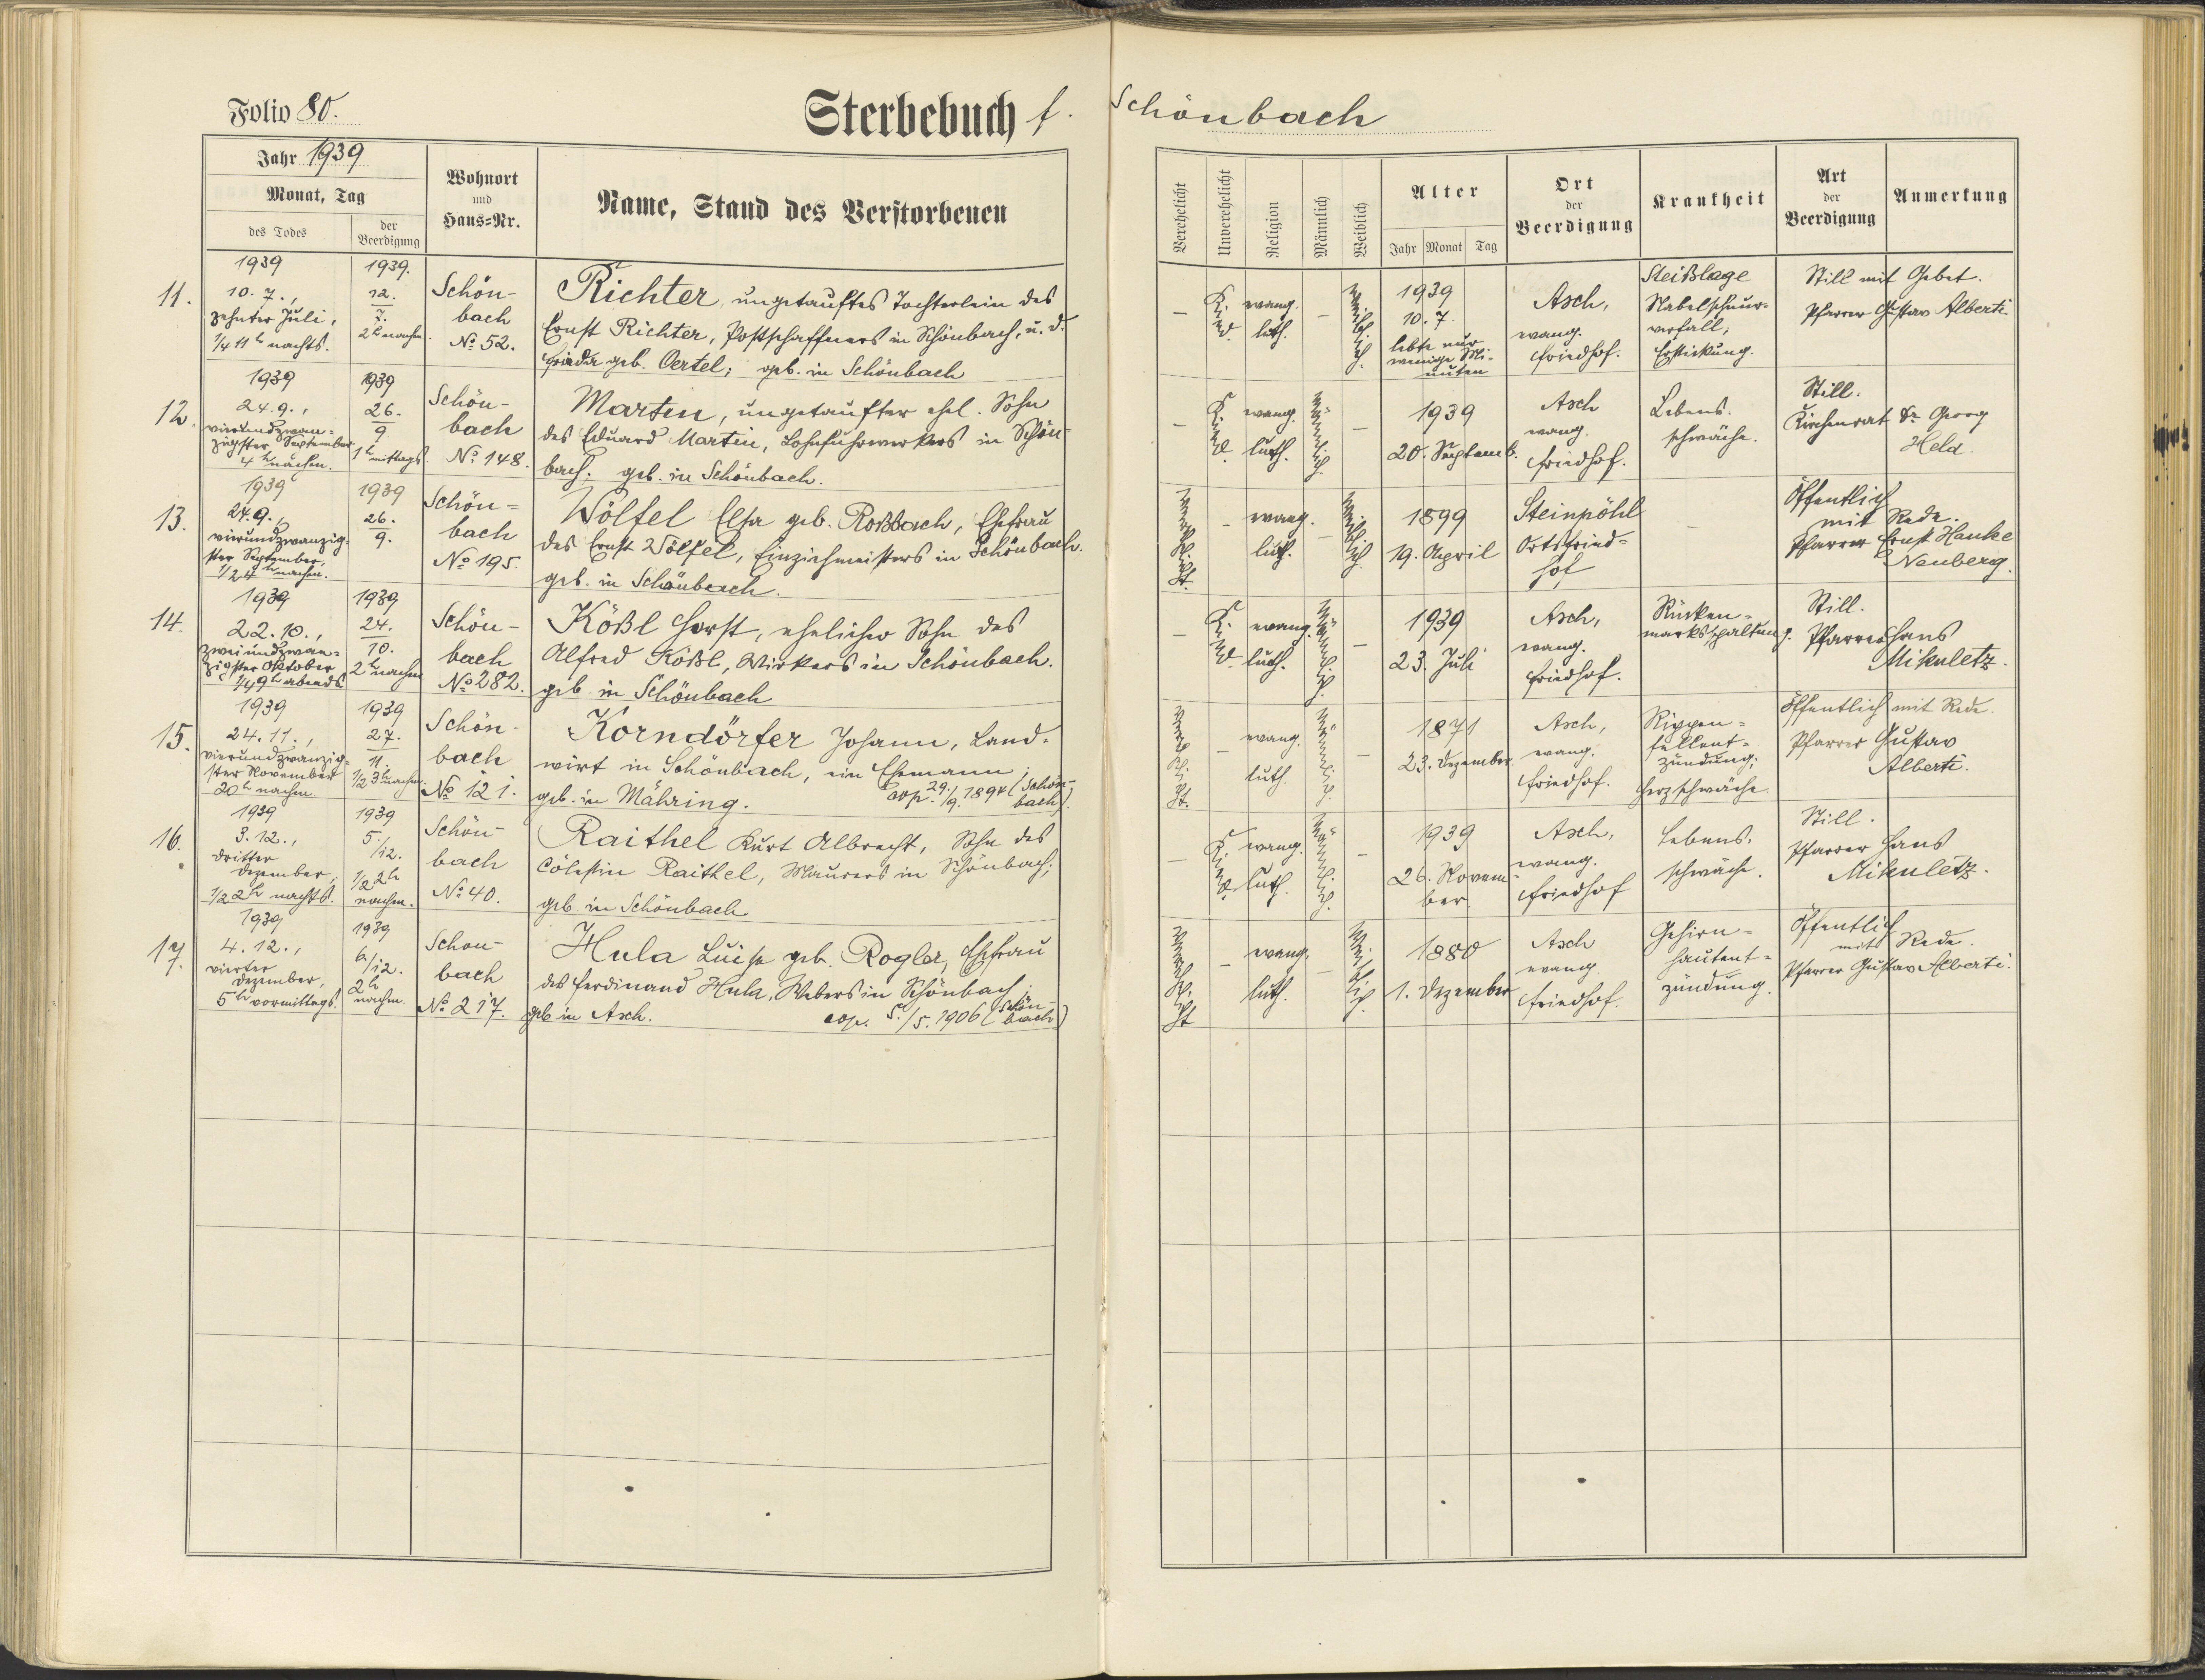 Folio 80.
Sterbebuch f. Schönbach
Jahr 1939
Monat, Tag
des Todes
der Beerdigung
Wohnort
und
Haus=Nr.
Name, Stand des Verstorbenen
Verehelicht
Unverehelicht
Religion
Männlich
Weiblich
Alter
Jahr Monat Tag
Ort
der
Beerdigung
Krankheit
Art
der
Beerdigung
Anmerkung
11.
1939
10. 7.,
zehnter Juli,
1/4 11 h nachts.
1939.
12.
7.
2 h nachm.
Schön-
bach
No 52.
Richter, ungetauftes Töchterlein des
Ernst Richter, Postschaffners in Schönbach, u. d.
Frieda geb. Oertel; geb. in Schönbach
–
Kind.
evang.
luth.
–
Weiblich.
1939
10. 7.
lebte nur
wenige Mi-
nuten
Asch,
evang.
Friedhof.
Steißlage
Nabelschnur-
vorfall;
Erstickung.
Still mit Gebet.
Pfarrer Gustav Alberti.
12.
1939
24. 9.,
vierundzwan-
zigster September
4 h nachm.
1939
26.
9
1 h mittags
Schön-
bach
No 148.
Martin, ungetaufter ehel. Sohn
des Eduard Martin, Lohnfuhrwerkers in Schön-
bach; geb. in Schönbach.
–
Kind.
evang.
luth.
Männlich.
–
1939
20. Septemb.
Asch
evang.
Friedhof.
Lebens-
schwäche.
Still.
Kirchenrat Dr. Georg
Held.
13.
1939
24. 9.,
vierundzwanzig-
ster September,
1/2 4 h nachm.
1939
26.
9.
Schön=
bach
No 195.
Wölfel Elsa geb. Roßbach, Ehefrau
des Ernst Wölfel, Einziehmeisters in Schönbach.
geb. in Schönbach.
Verehelicht.
–
evang.
luth.
–
Weiblich.
1899
19. April
Steinpöhl
Ortsfried=
hof
–
Öffentlich
mit Rede.
Pfarrer Ernst Hanke
Neuberg.
14.
1939
22. 10.,
zweiundzwan-
zigster Oktober
1/4 9 h abends
1939
24.
10.
2 h nachm
Schön-
bach
No 282.
Kößl Horst, ehelicher Sohn des
Alfred Kößl, Wirkers in Schönbach.
geb. in Schönbach
–
Kind.
evang.
luth.
Männlich.
–
1939
23. Juli
Asch,
evang.
Friedhof.
Rücken=
marksspaltung.
Still.
Pfarrer Hans
Mikuletz.
15.
1939
24. 11.,
vierundzwanzig-
ster November
20 h nachm.
1939
27.
11.
1/2 3 h nachm.
Schön-
bach
No 121.
Korndörfer Johann, Land-
wirt in Schönbach, ein Ehemann;
geb. in Mähring. cop. 29./9. 1894 (Schön-
bach).
Verehelicht.
–
evang.
luth.
Männlich.
–
1871
23. Dezember
Asch,
evang.
Friedhof.
Rippen=
fellent-
zündung;
Herzschwäche.
Öffentlich mit Rede.
Pfarrer Gustav
Alberti.
16.
1939
3. 12.,
dritter
Dezember,
1/2 2 h nachts.
1939
5./12.
1/2 2 h
nachm.
Schön-
bach
No 40.
Raithel Kurt Albrecht, Sohn des
Cölestin Raithel, Maurers in Schönbach;
geb. in Schönbach
–
Kind.
evang.
luth.
Männlich.
–
1939
26. Novem-
ber.
Asch,
evang.
Friedhof
Lebens-
schwäche.
Still.
Pfarrer Hans
Mikuletz.
17.
1939
4. 12.,
vierter
Dezember,
5 h vormittags.
1939
6./12.
2 h
nachm.
Schön-
bach
No 217.
Hula Luise geb. Rogler, Ehefrau
des Ferdinand Hula, Webers in Schönbach;
geb. in Asch. cop. 5./5. 1906 (Schön-
bach)
Verehelicht
–
evang.
luth.
–
Weiblich.
1880
1. Dezember
Asch
evang.
Friedhof.
Gehirn-
hautent=
zündung.
Öffentlich
mit Rede.
Pfarrer Gustav Alberti.